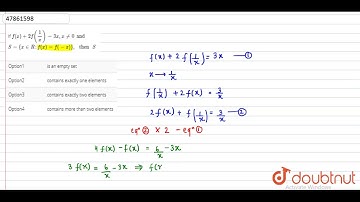 47861598
If f(x) + 2f(1/x) = 3x, x ≠ 0 and
S = {x ∈ R: f(x) = f(−x)}, then S
Option1 is an empty set
Option2 contains exactly one elements
Option3 contains exactly two elements
Option4 contains more than two elements
f(x) + 2 f(1/x) = 3x —①
x → 1/x
f(1/x) + 2f(x) = 3/x
2f(x) + f(1/x) = 3/x —②
eqⁿ ② × 2 - eqⁿ ①
4f(x) - f(x) = 6/x - 3x
3 f(x) = 6/x - 3x ⇒ f(x
doubtnut